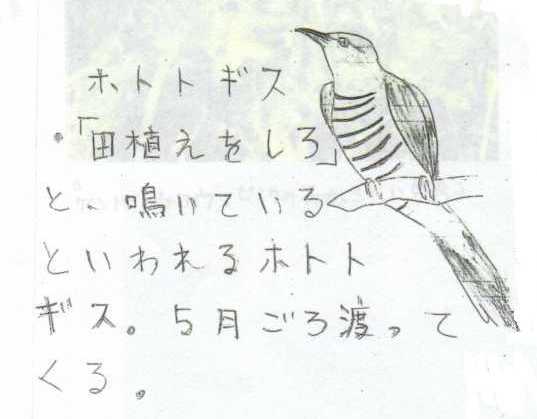 ホトトギス
・「田植えをしろ」
と、鳴いている
といわれるホトト
ギス。5月ごろ渡って
くる。